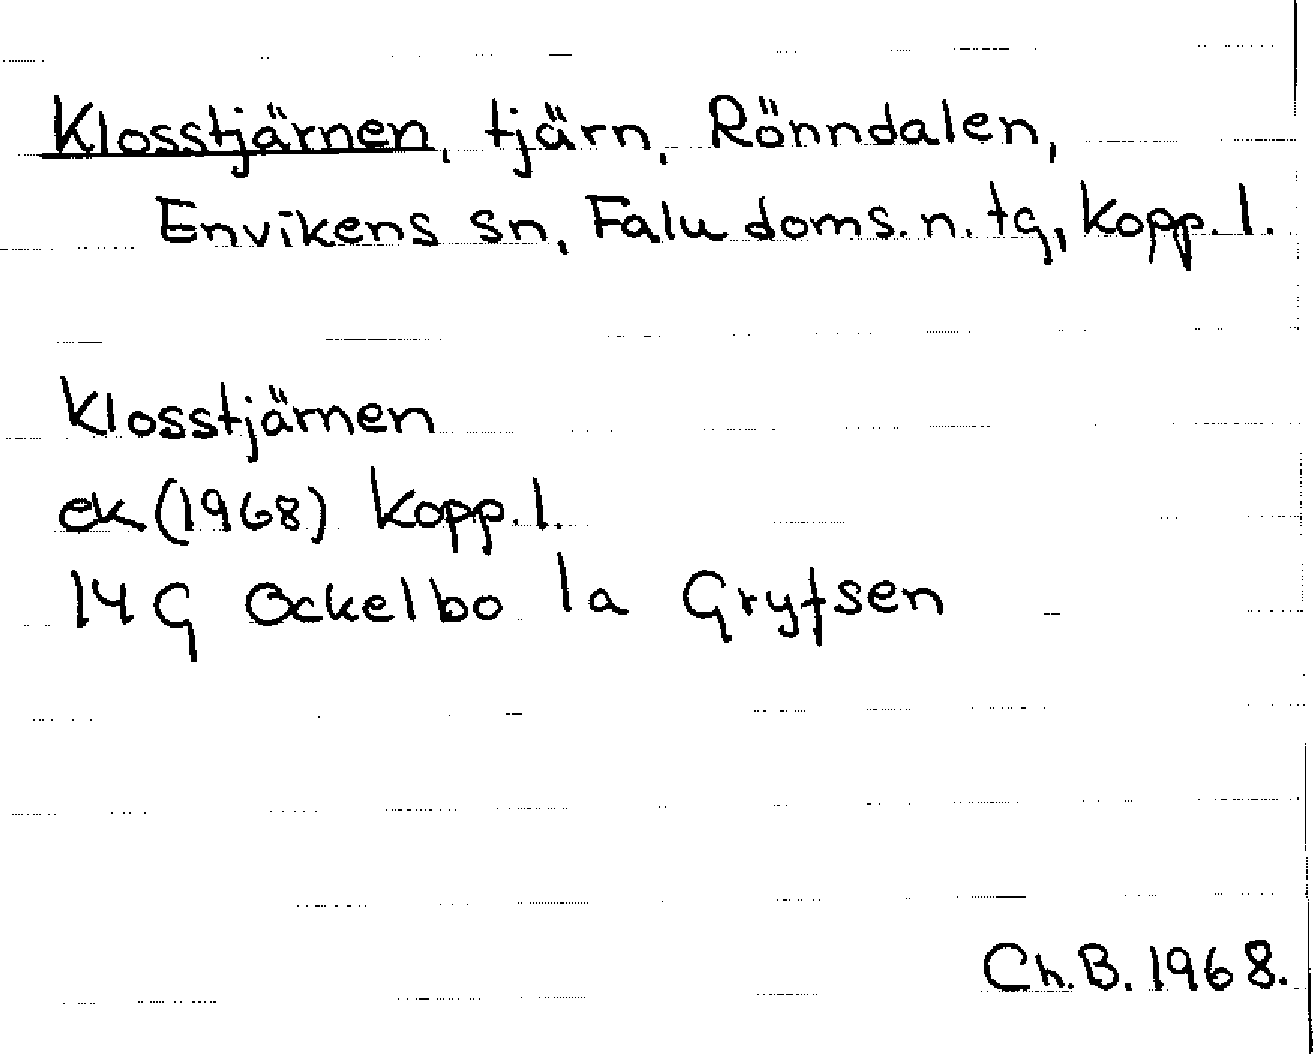 Klosstjärnen, tjärn, Rönndalen,
Envikens sn, Falu doms.n. tg, Kopp. l.
Klosstjärnen
ek (1968) Kopp. l.
14 G Ockelbo 1a Grytsen
Ch.B. 1968.